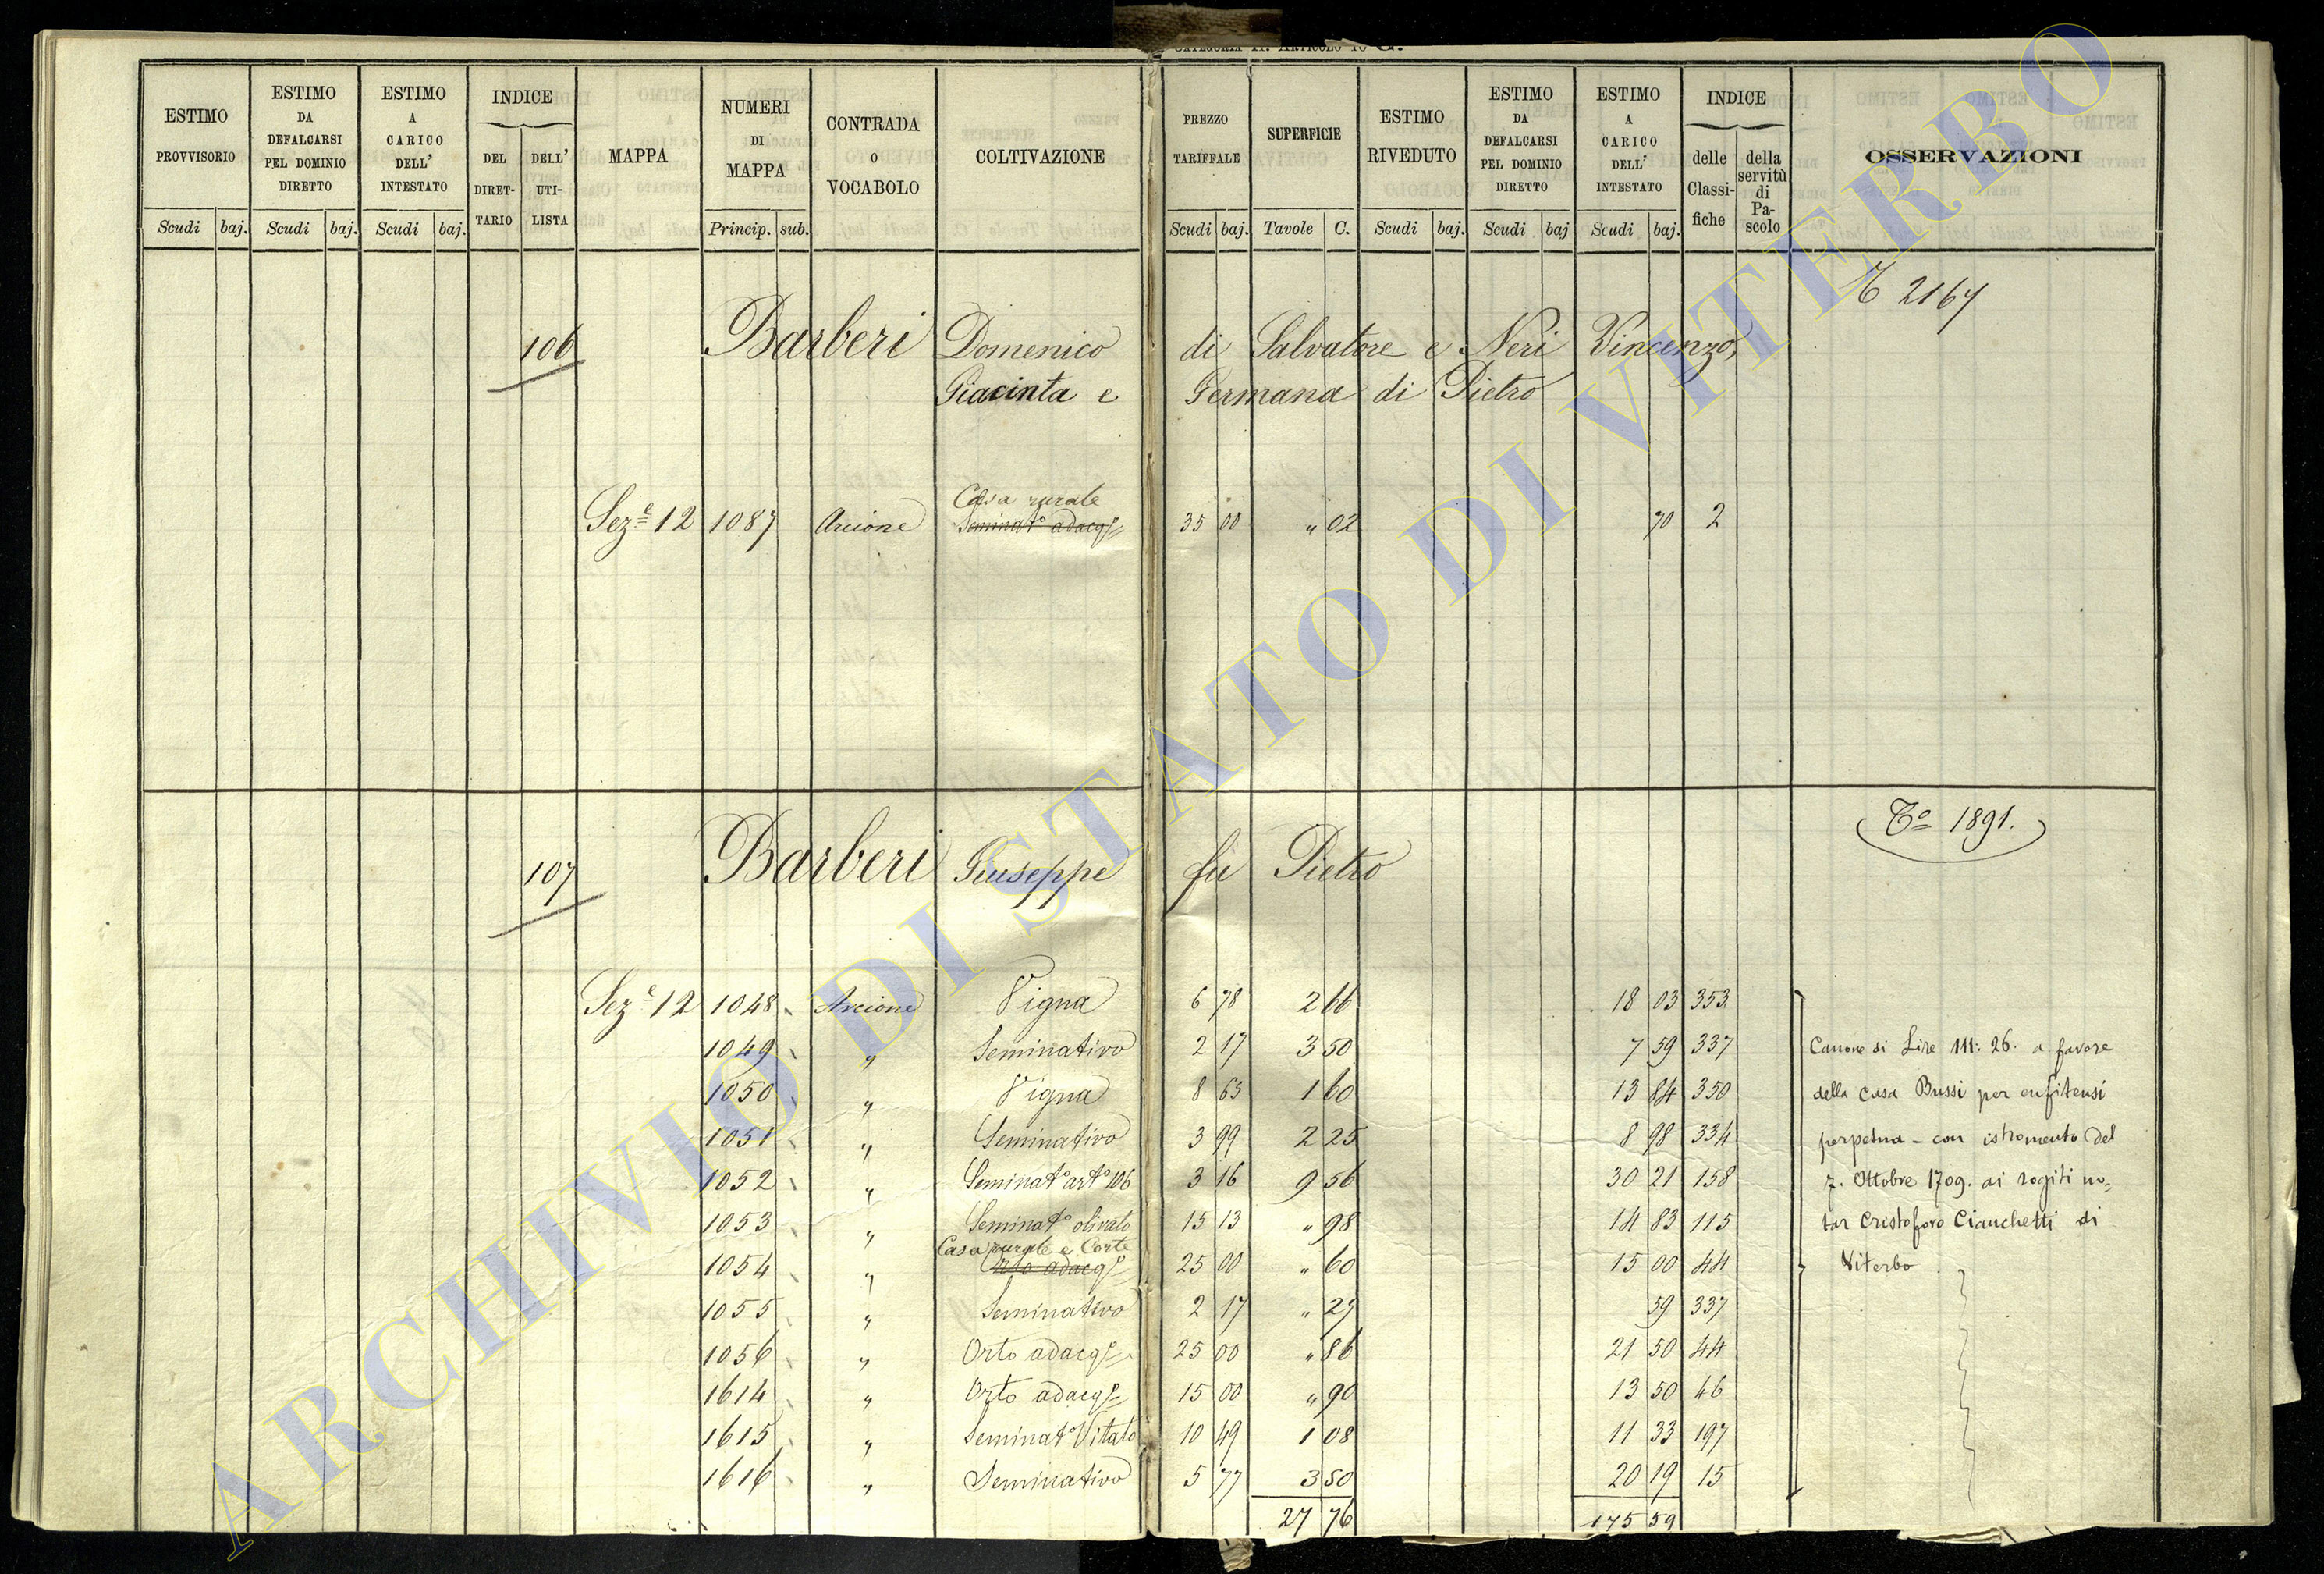 CATEGORIA II. ARTICOLO 10 G.
ESTIMO PROVVISORIO | ESTIMO DA DEFALCARSI PEL DOMINIO DIRETTO | ESTIMO A CARICO DELL' INTESTATO | INDICE DEL DIRETTARIO | DELL' UTILISTA | MAPPA | NUMERI DI MAPPA | CONTRADA O VOCABOLO | COLTIVAZIONE | PREZZO TARIFFALE | SUPERFICIE | ESTIMO RIVEDUTO | ESTIMO DA DEFALCARSI PEL DOMINIO DIRETTO | ESTIMO A CARICO DELL' INTESTATO | INDICE delle Classifiche | della servitù di Pascolo | OSSERVAZIONI
Scudi baj. | Scudi baj. | Scudi baj. | Princip. sub. | Scudi baj. | Tavole C. | Scudi baj. | Scudi baj | Scudi baj.
2167
106 Barberi Domenico di Salvatore e Neri Vincenzo,
Giacinta e Germana di Pietro
Casa rurale
Sez.e 12 1087 Arcione Seminat.o adacq.o 35 00 " 02 70 2
T.o 1891.
107 Barberi Giuseppe fu Pietro
Sez.e 12 1048 Arcione Vigna 6 78 2 66 18 03 353
1049 " Seminativo 2 17 3 50 7 59 337
1050 " Vigna 8 65 1 60 13 84 350
1051 " Seminativo 3 99 2 25 8 98 334
1052 " Seminat.o art.o 106 3 16 9 56 30 21 158
1053 " Seminat.o olivato 15 13 " 98 14 83 115
Casa rurale e Corte
1054 " Orto adacq.o 25 00 " 60 15 00 44
1055 " Seminativo 2 17 " 27 59 337
1056 " Orto adacq.o 25 00 " 86 21 50 44
1614 " Orto adacq.o 15 00 " 90 13 50 46
1615 " Seminat.o Vitato 10 49 1 08 11 33 197
1616 " Seminativo 5 77 3 50 20 19 15
27 76 175 59
Canone di Lire 111: 26. a favore
della Casa Bussi per enfitensi
perpetua - con istromento del
7. Ottobre 1709. ai rogiti no=
tar Cristoforo Cianchetti di
Viterbo
ARCHIVIO DI STATO DI VITERBO